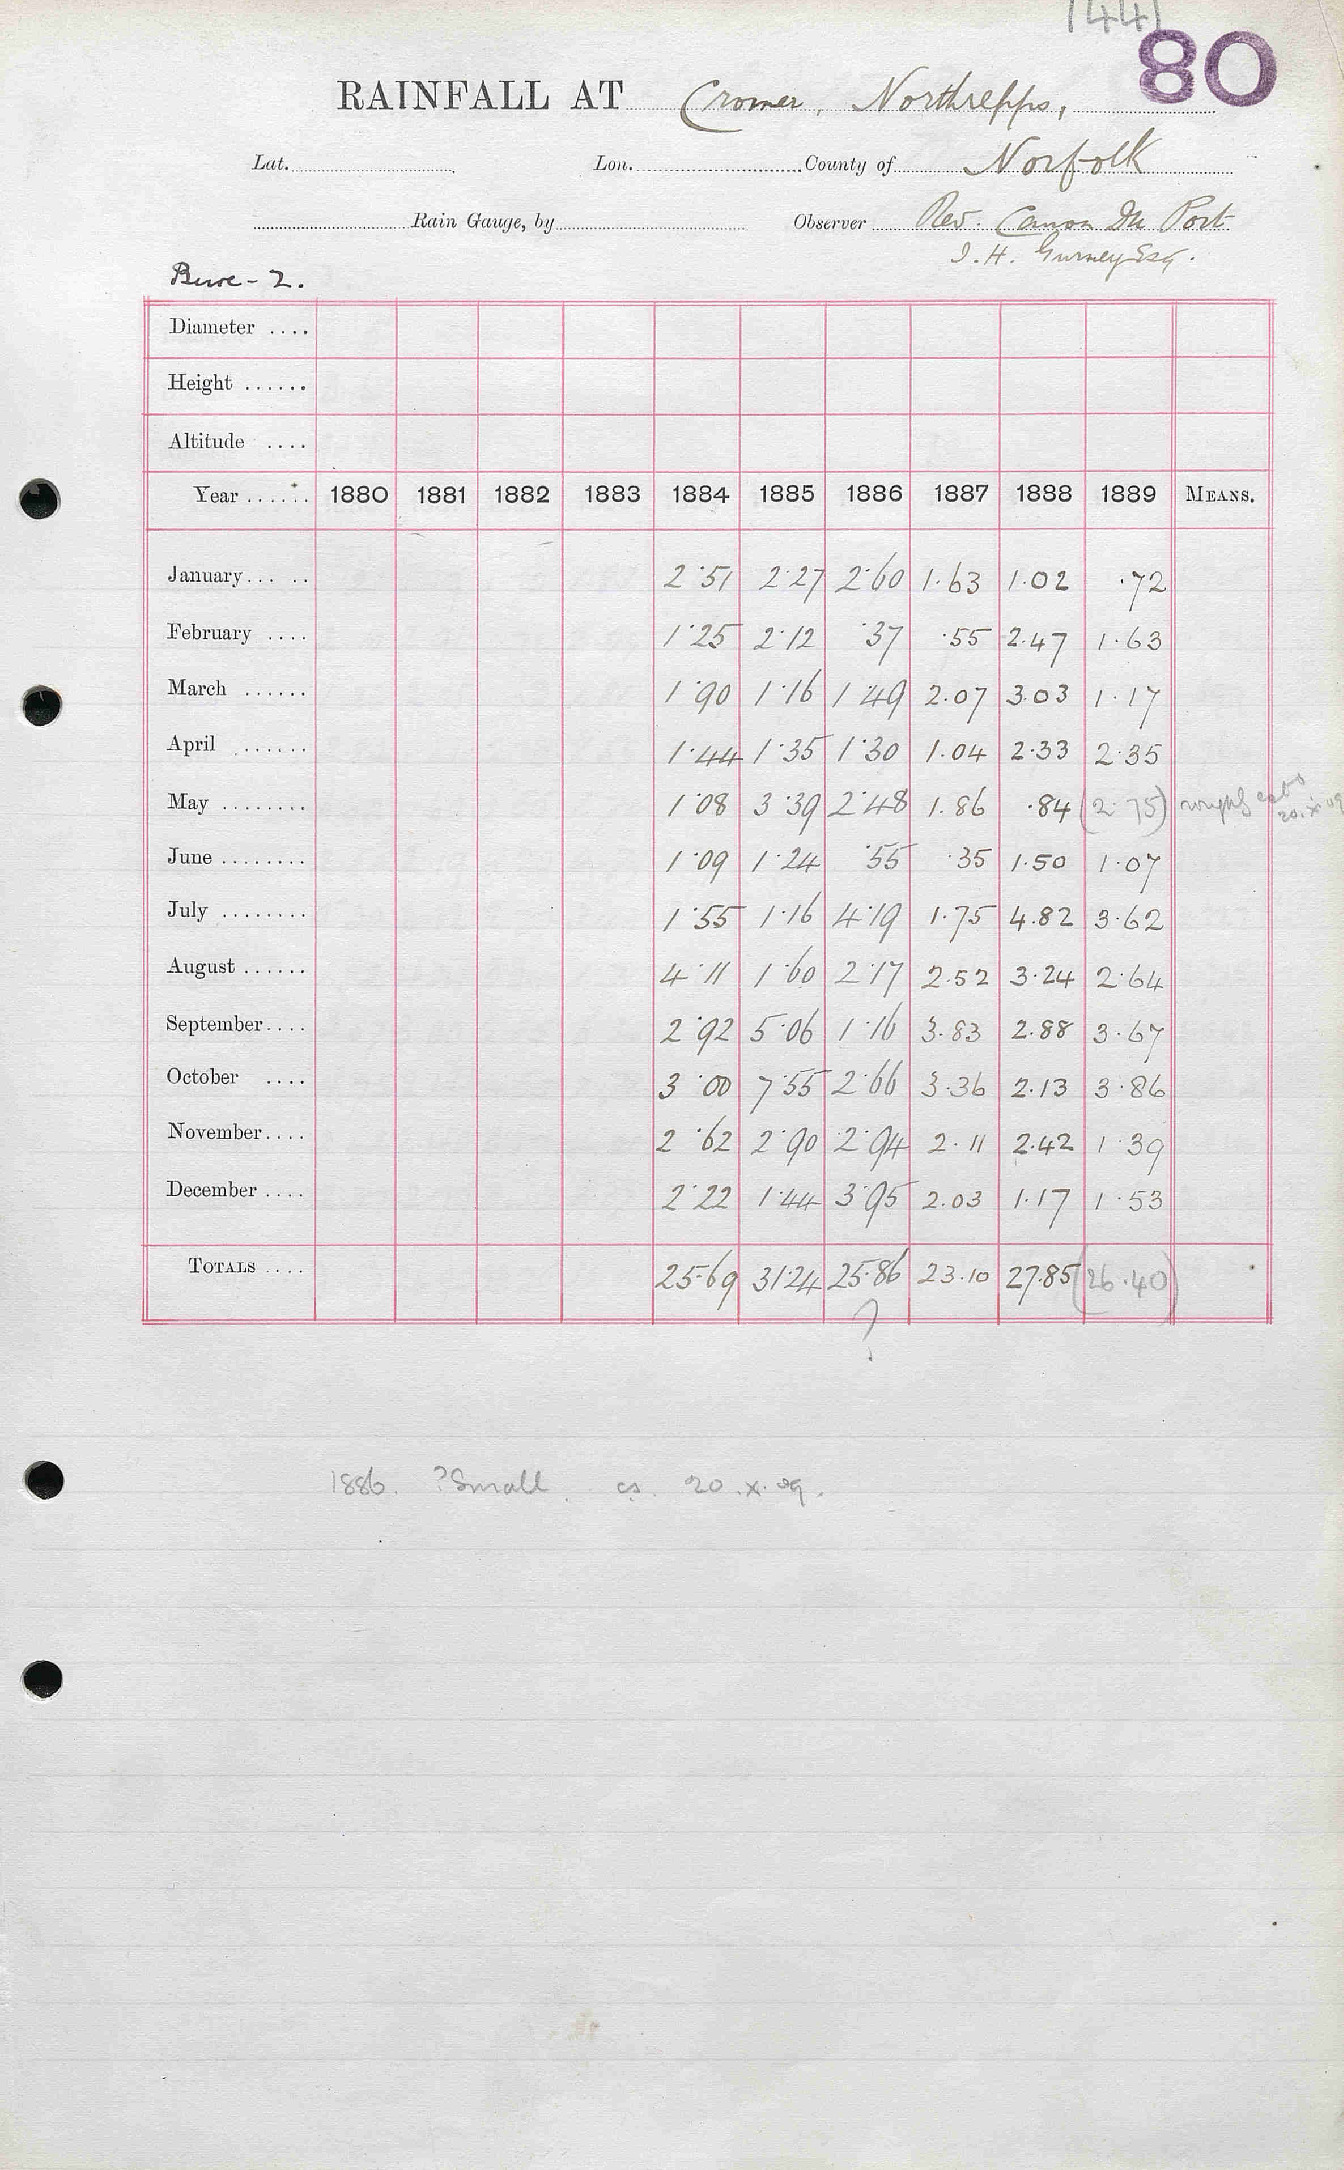 1441
80
RAINFALL AT Cromer, Northrepps,
Lat. Lon. County of Norfolk
Rain Gauge, by Observer Rev. Canon Du Port
J. H. Gurney Esq.
Bure - 2.
Diameter ....
Height ......
Altitude ....
Year ...... 1880 1881 1882 1883 1884 1885 1886 1887 1888 1889 MEANS.
January... .. 2.51 2.27 2.60 1.63 1.02 .72
February .... 1.25 2.12 .37 .55 2.47 1.63
March ...... 1.90 1.16 1.49 2.07 3.03 1.17
April ...... 1.44 1.35 1.30 1.04 2.33 2.35
May ........ 1.08 3.39 2.48 1.86 .84 (2.75) rough
June ........ 1.09 1.24 .55 .35 1.50 1.07
July ........ 1.55 1.16 4.19 1.75 4.82 3.62
August ...... 4.11 1.60 2.17 2.52 3.24 2.64
September.... 2.92 5.06 1.16 3.83 2.88 3.67
October .... 3.00 7.55 2.66 3.36 2.13 3.86
November.... 2.62 2.90 2.94 2.11 2.42 1.39
December .... 2.22 1.44 3.95 2.03 1.17 1.53
TOTALS .... 25.69 31.24 25.86 23.10 27.85 (26.40)
?
1886. ?Small. cs. 20.x.09.